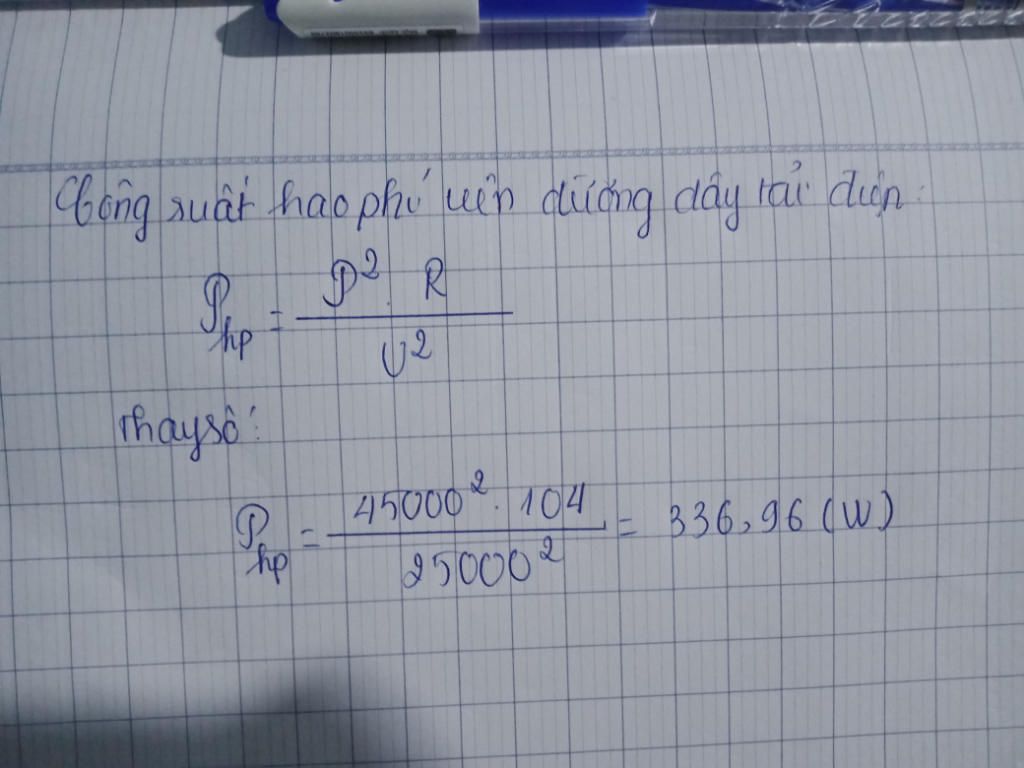 Công suất hao phí trên đường dây tải điện:
P_hp = P². R / U²
Thay số:
P_hp = 45000² . 104 / 25000² = 336,96 (W)